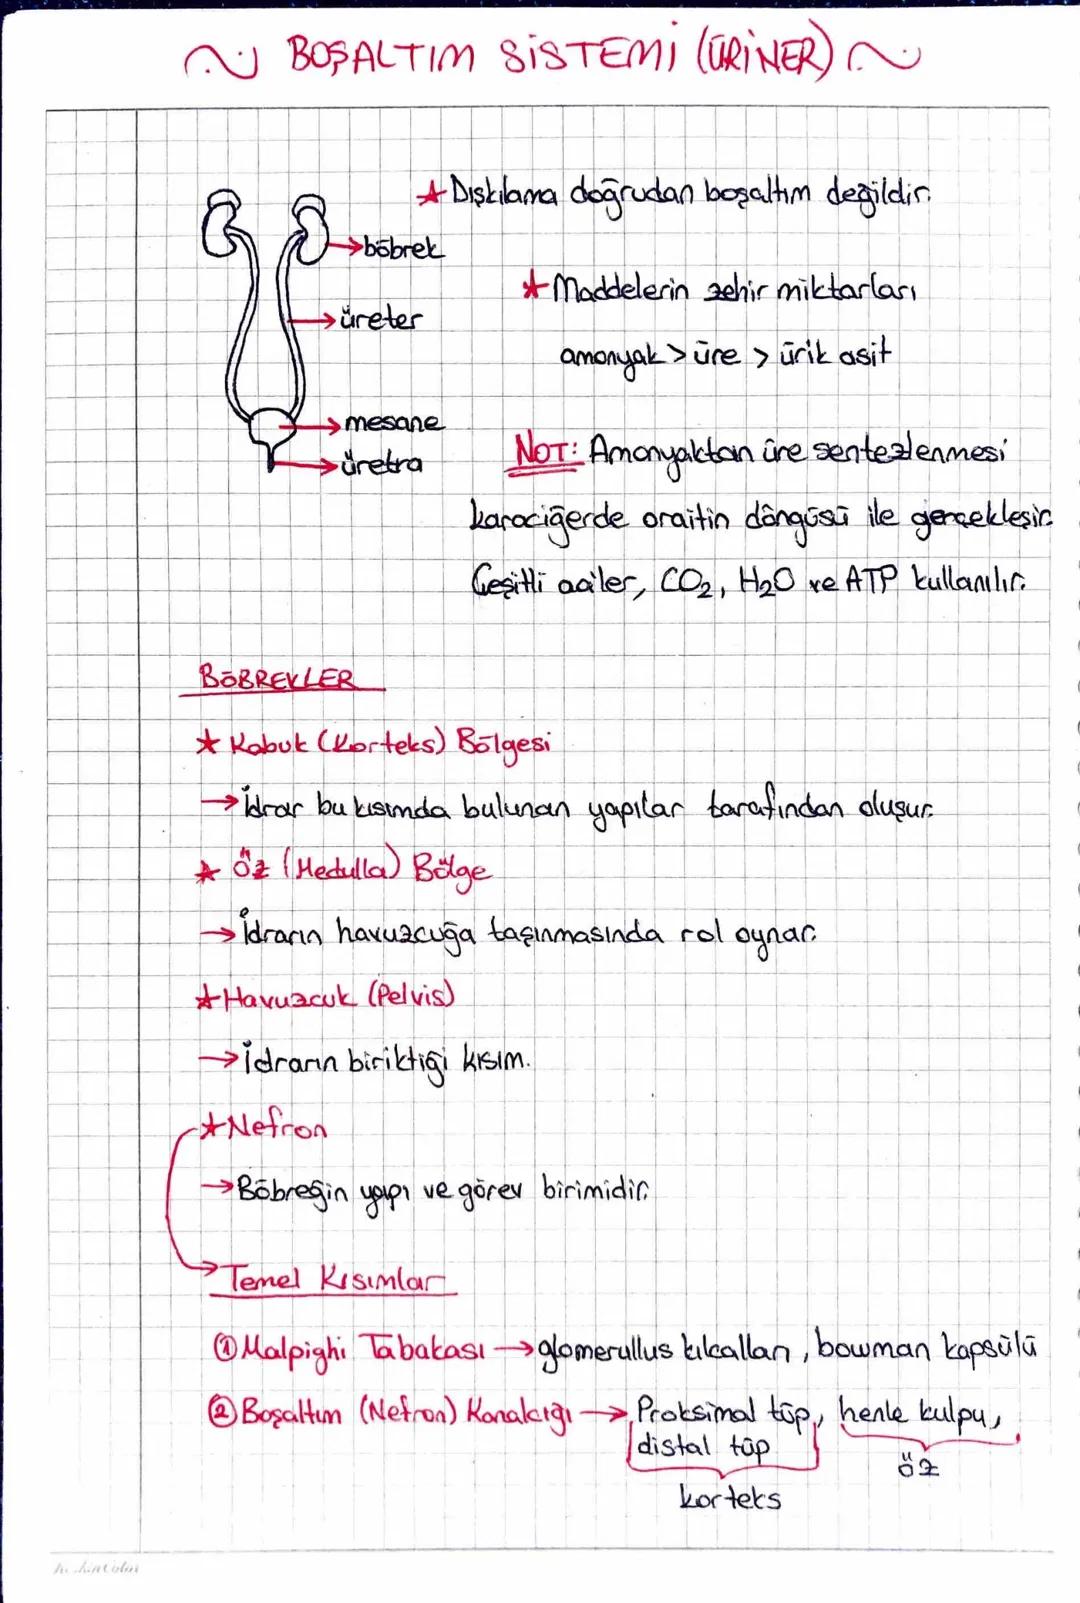 BOŞALTIM SİSTEMİ (ÜRİNER)
★ Dışkılama doğrudan boşaltım değildir.
→ böbrek
★ Maddelerin zehir miktarları
→ üreter
amonyak > üre > ürik asit
→ mesane
NOT: Amonyaktan üre sentezlenmesi
→ üretra
karaciğerde oraitin döngüsü ile gerçekleşir.
Çeşitli aailer, CO2, H2O ve ATP kullanılır.
BÖBREKLER
★ Kabuk (Korteks) Bölgesi
→ İdrar bu kısımda bulunan yapılar tarafından oluşur.
★ Öz (Medulla) Bölge
→ İdrarın havuzcuğa taşınmasında rol oynar.
★ Havuzcuk (Pelvis)
→ İdrarın biriktiği kısım.
★ Nefron
→ Böbreğin yapı ve görev birimidir.
→ Temel Kısımlar
① Malpighi Tabakası → glomerullus kılcalları, bowman kapsülü
② Boşaltım (Nefron) Kanalcığı → Proksimal tüp, henle kulpu,
distal tüp
öz
korteks